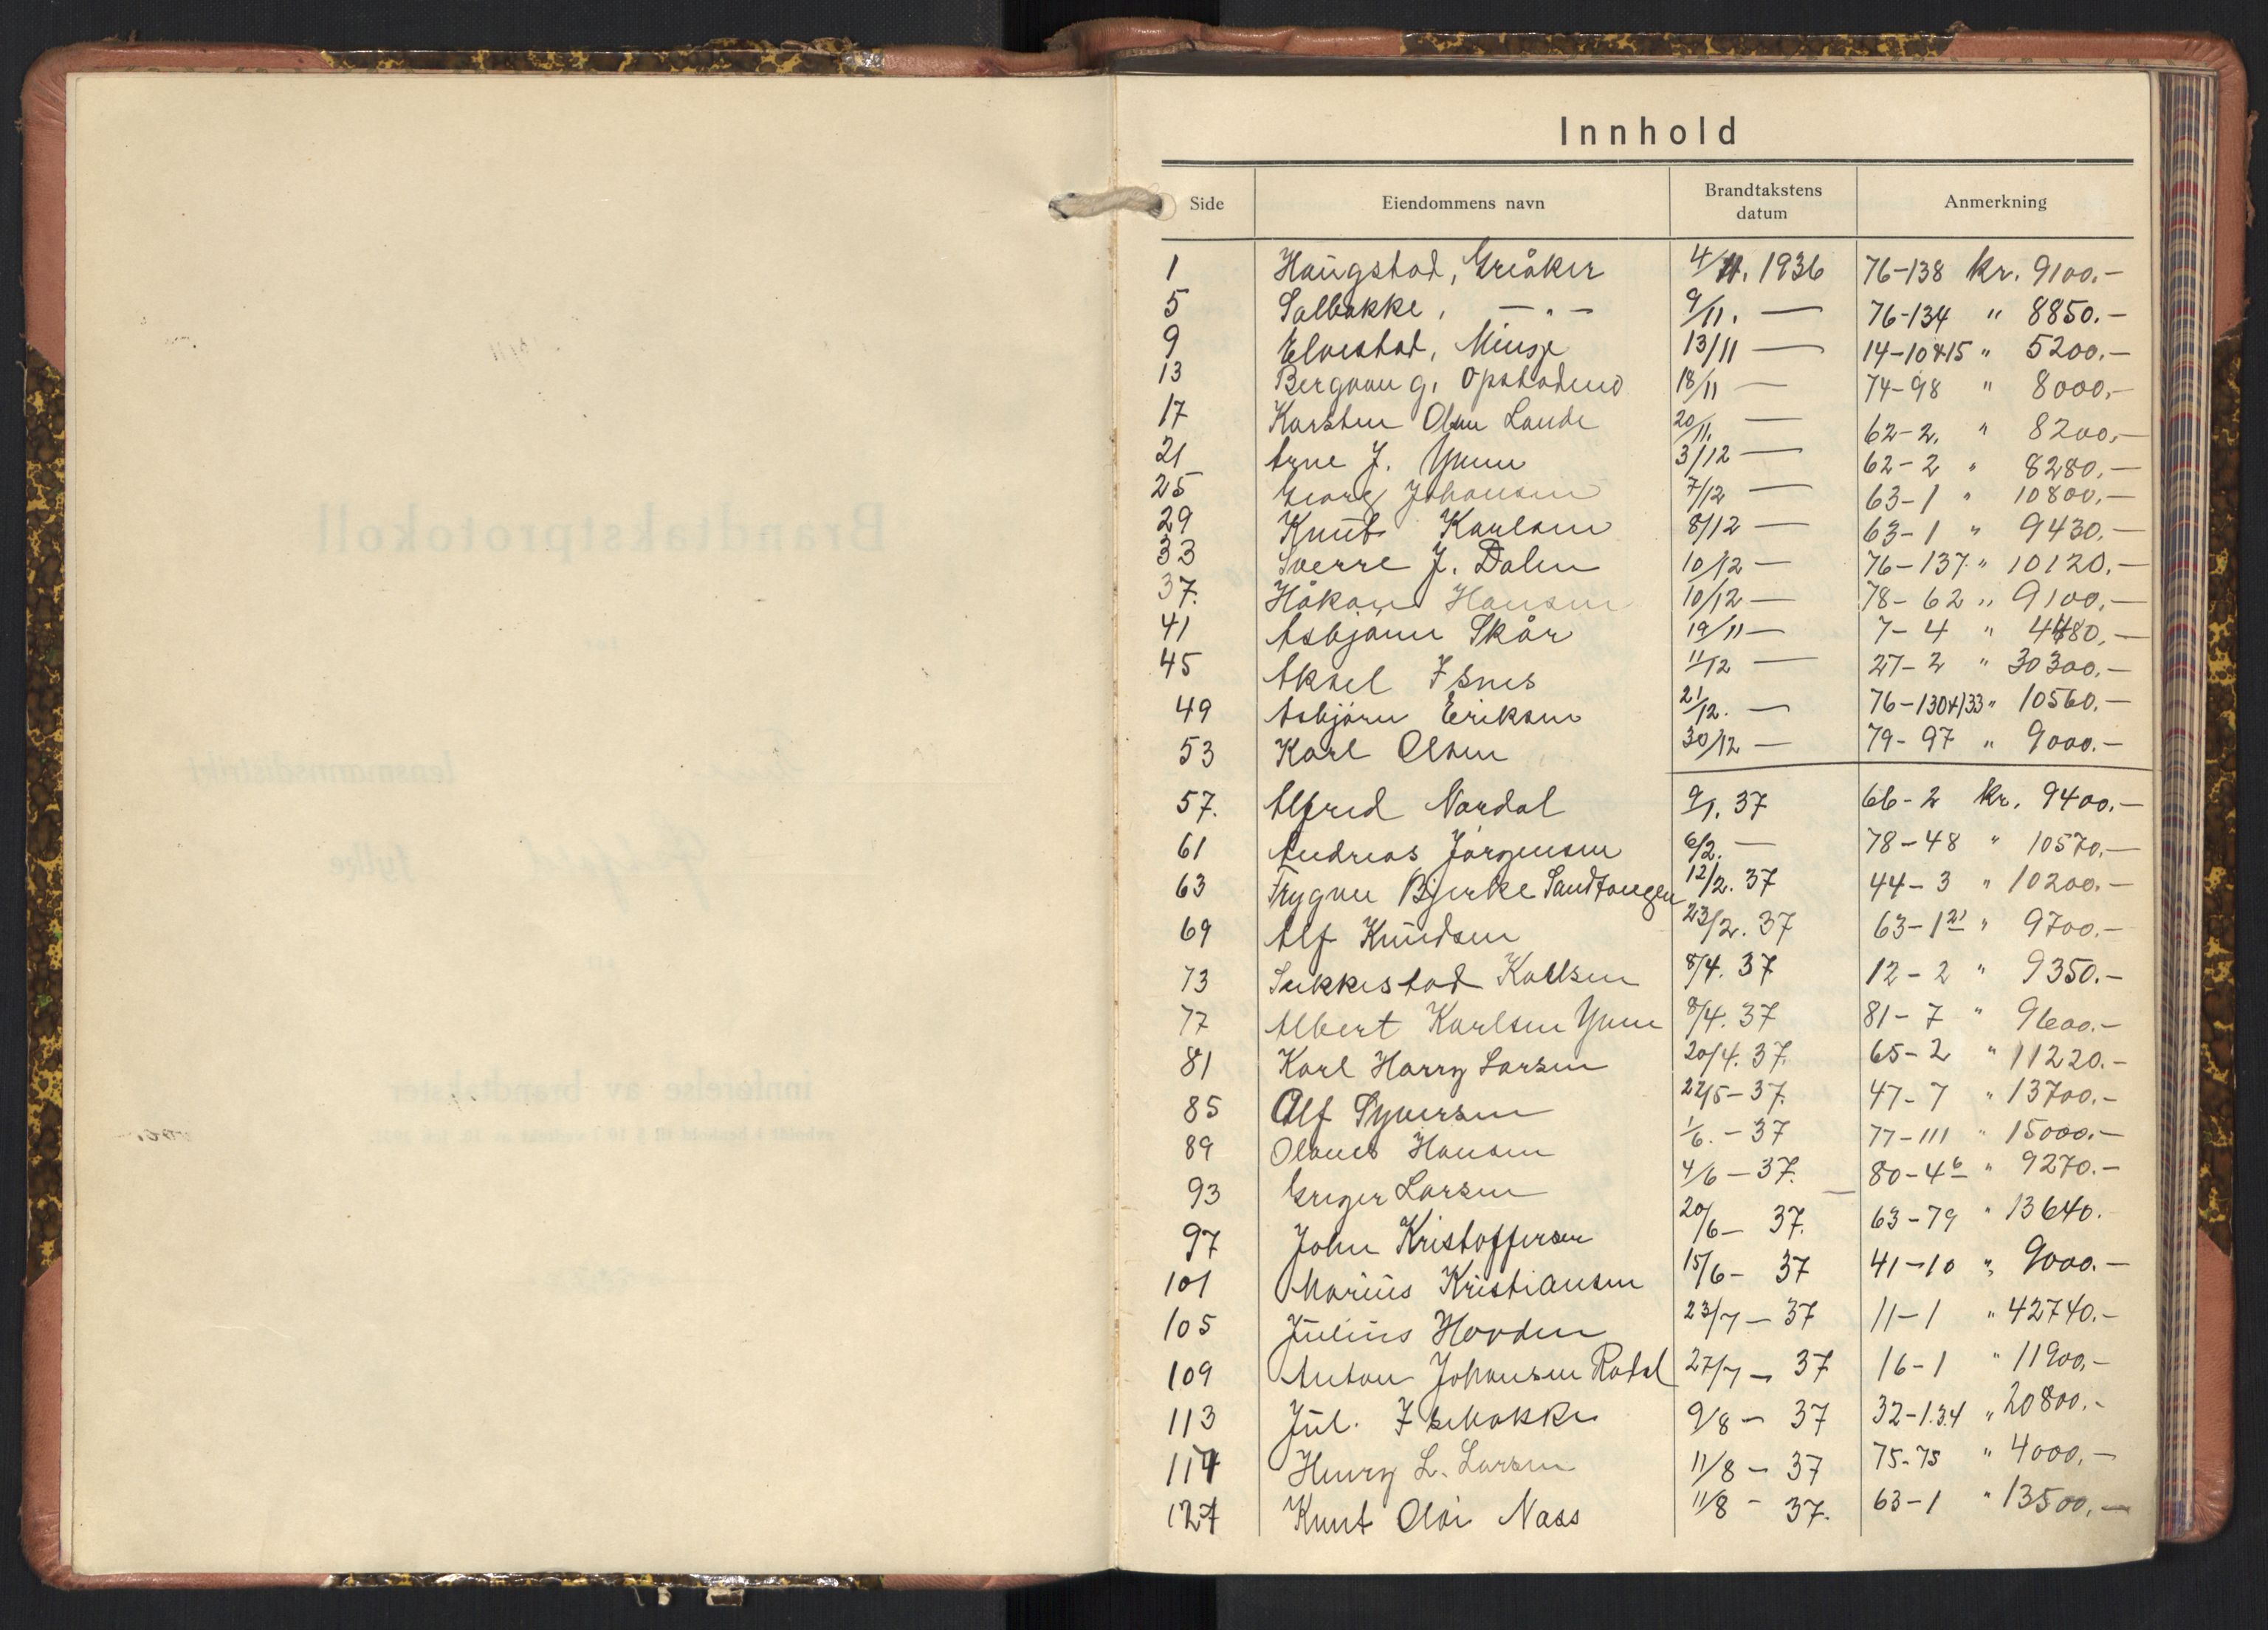 Innhold
Side Eiendommens navn Brandtakstens datum Anmerkning
1 Haugstad, Greåker 4/11. 1936 76-138 kr. 9100.-
5 Solbakke, - " - 9/11. — 76-134 " 8850.-
9 Elvestad, Minge 13/11 — 14-10+15 " 5200.-
13 Bergvang, Opstadmo 18/11 — 74-98 " 8000,-
17 Karsten Olsen Lande 20/11. — 62-2. " 8200,-
21 Arne J. Ynne 3/12 — 62-2 " 8280.-
25 Georg Johansen 7/12 — 63-1 " 10800,-
29 Knut Karlsen 8/12 — 63-1 " 9430.-
33 Sverre J. Dalen 10/12 — 76-137. " 10120.-
37. Håkon Hansen 10/12 — 78-62 " 9100,-
41 Asbjørn Skår 19/11 — 7-4 " 4480,-
45 Aksel Isnes 11/12 — 27-2 " 30300.-
49 Asbjörn Eriksen 21/12. — 76-130+133 " 10560.-
53 Karl Olsen 30/12 — 79-97 " 9000.-
57. Alfred Nordal 9/1. 37 66-2 kr. 9400.-
61 Andreas Jörgensen 6/2. — 78-48 " 10570,-
63 Trygve Bjerke Sandtangen 12/2. 37 44-3 " 10200.-
69 Alf Knudsen 23/2. 37 63-1 21 " 9700.-
73 Sukkestad Kallsen 8/4. 37 12-2 " 9350.-
77 Albert Karlsen Ynne 8/4. 37 81-7 " 9600.-
81 Karl Harry Larsen 20/4. 37. 65-2 " 11220.-
85 Alf Syversen 22/5-37. 47-7 " 13700.-
89 Olaves Hansen 1/6.-37 77-111 " 15000.-
93 Greger Larsen 4/6-37. 80-4 6 " 9270.-
97 John Kristoffersen 20/6- 37. 63-79 " 13640.
101 Marius Kristiansen 15/6- 37 41-10 " 9000.-
105 Julius Hovden 23/7-37 11-1 " 42740.-
109 Anton Johansen Rødal 27/7- 37 16-1 " 11900,-
113 Jul. Isebakke 9/8- 37 32-1.3.4 " 20800.-
117 Henry L. Larsen 11/8- 37 75-75 " 4000,-
127 Knut Olai Nass 11/8- 37. 63-1 " 13500,-